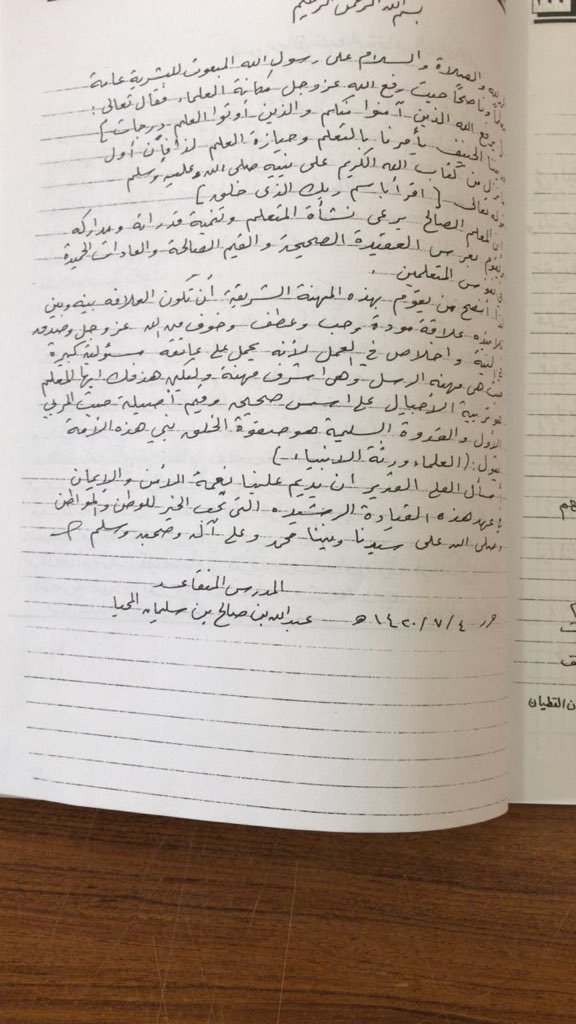 بسم الله الرحمن الرحيم
لله والصلاة والسلام على رسول الله المبعوث للبشرية عامة
وناصحاً حيث رفع الله عز وجل مكانة العلماء فقال تعالى:
يرفع الله الذين آمنوا منكم والذين أوتوا العلم درجات]
الحنيف يأمرنا بالتعلم وحيازة العلم لذا فإن أول
نزل من كتاب الله الكريم على نبيه صلى الله وعليه وسلم
قوله تعالى [اقرأ باسم ربك الذي خلق]
إن المعلم الصالح يرعى نشأة المتعلم وتنمية قدراته ومداركه
ويقوم بغرس العقيدة الصحيحة والقيم الصالحة والعادات الحميدة
في نفوس المتعلمين.
أنصح من يقوم بهذه المهنة الشريفة أن تكون العلاقة بينه وبين
تلاميذه علاقة مودة وحب وعطف وخوف من الله عز وجل وصدق
في النية واخلاص في العمل لأنه يحمل على عاتقه مسئولية كبيرة
حيث هي مهنة الرسل وهي اشرف مهنة وليكن هدفك ايها المعلم
هو تربية الأجيال على اسس صحيحة وقيم أصيلة حيث المربي
الأول والقدوة السليمة هو صفوة الخلق نبي هذه الأمة
يقول: (العلماء ورثة الانبياء -)
نسأل العلي القدير ان يديم علينا نعمة الأمن والإيمان
في عهد هذه القيادة الرشيده التي تحب الخير للوطن والمواطن
وصلى الله على سيدنا ونبينا محمد وعلى آله وصحبه وسلم
المدرس المتقاعد
حرر ١٤٢٠/٧/٤ هـ عبدالله بن صالح بن سليمان المحيا
١٠٠
هم
ت
ق
ن القطيان